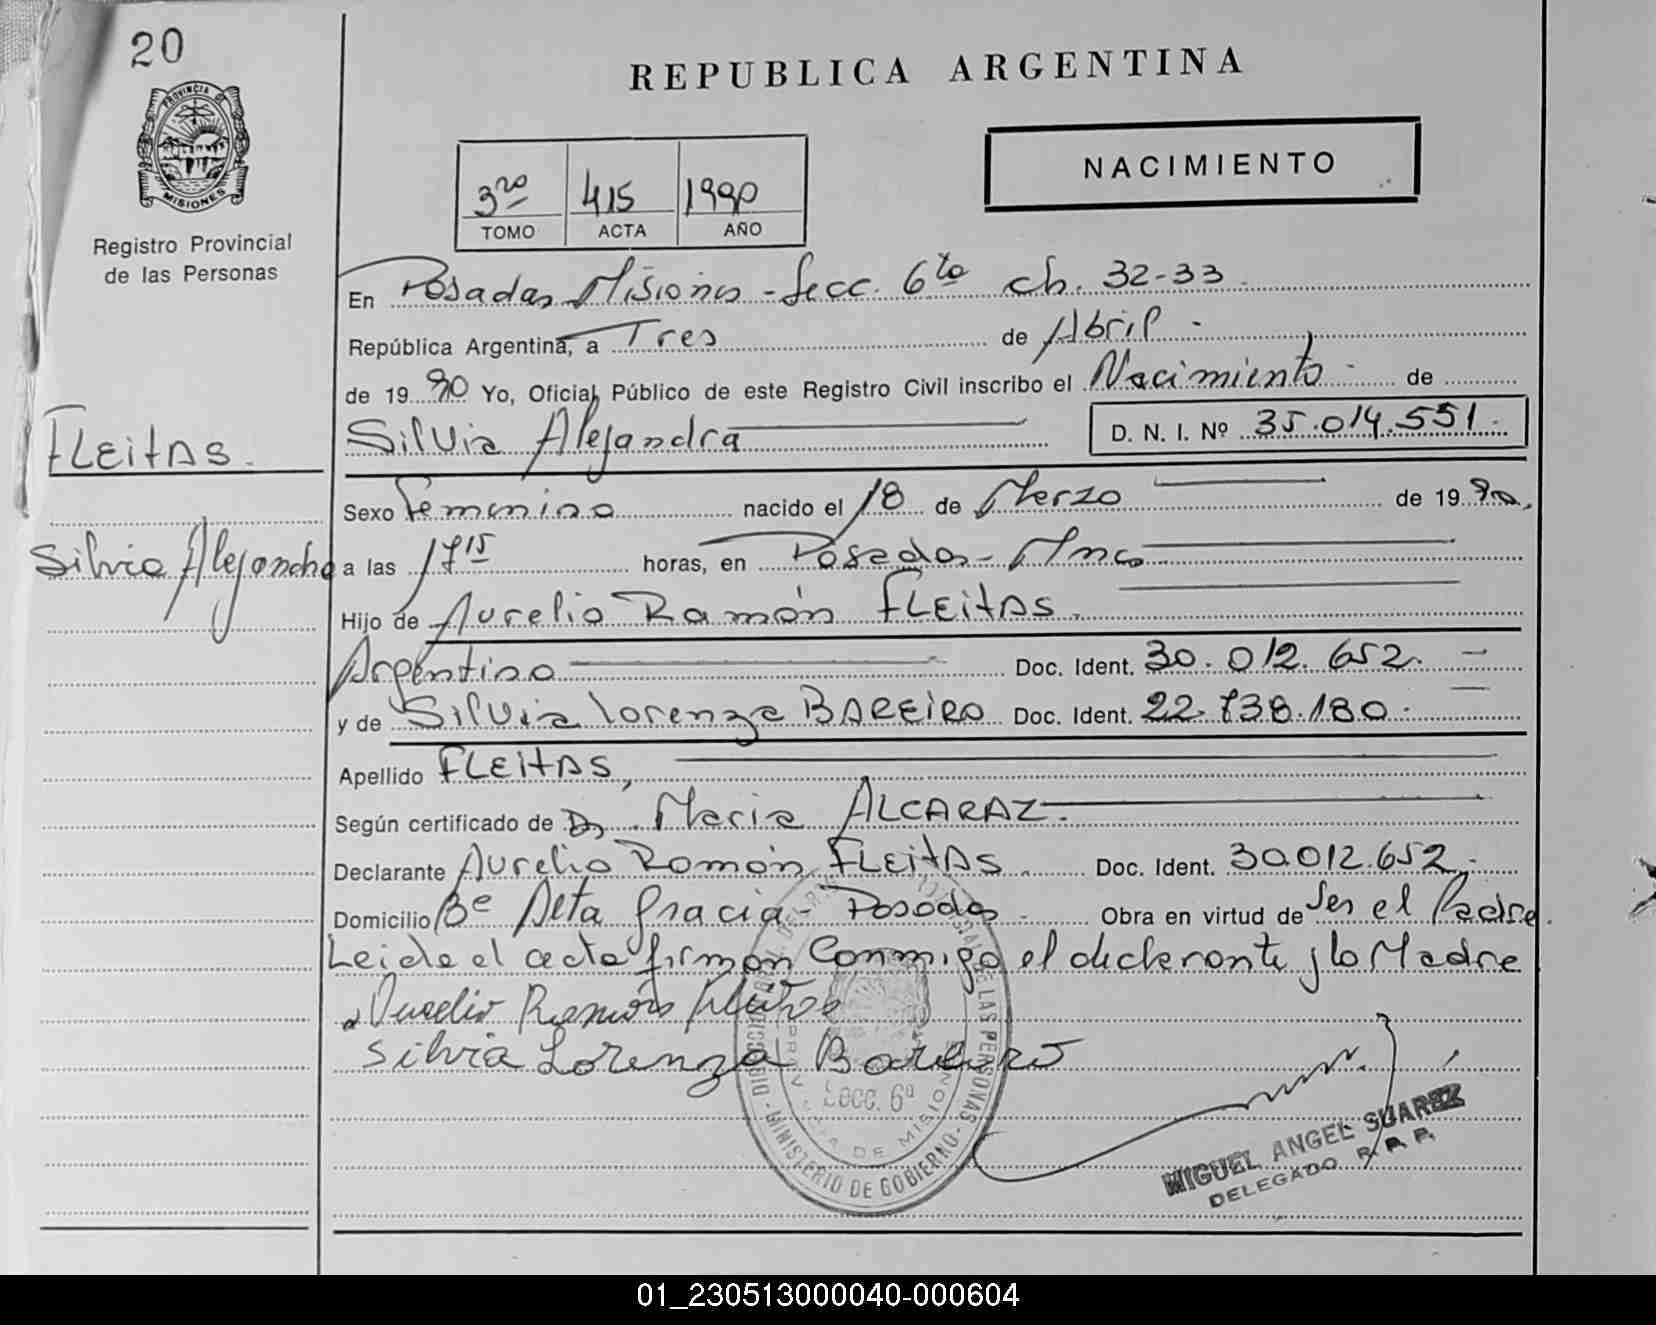 20
REPUBLICA ARGENTINA
PROVINCIA DE
MISIONES
NACIMIENTO
3ro 415 1990
TOMO ACTA AÑO
Registro Provincial
de las Personas
En Posadas Misiones - Secc. 6ta ch. 32-33
República Argentina, a Tres de Abril -
de 19 90 Yo, Oficial Público de este Registro Civil inscribo el Nacimiento - de
FLEITAS.
Silvia Alejandra D. N. I. Nº 35.014.551.-
Sexo Femenino nacido el 18 de Marzo de 19 90,
Silvia Alejandra
a las 17 15 horas, en Posadas - Mnes
Hijo de Aurelio Ramón FLEITAS.
Argentino Doc. Ident. 30.012.652. -
y de Silvia Lorenza BAREIRO Doc. Ident. 22.738.180.
Apellido FLEITAS,
Según certificado de Dra. Maria ALCARAZ.
Declarante Aurelio Ramón FLEITAS Doc. Ident. 30.012.652.-
Domicilio Bº Alta Gracia - Posadas Obra en virtud de Ser el Padre.
Leida el acta firman Conmigo el declarante y la Madre
Aurelio Ramón Fleitas
Silvia Lorenza Bareiro
Secc. 6ª
PROVINCIA DE MISIONES
DE LAS PERSONAS - MINISTERIO DE GOBIERNO - DIRECCION
MIGUEL ANGEL SUAREZ
DELEGADO R. P. P.
01_230513000040-000604